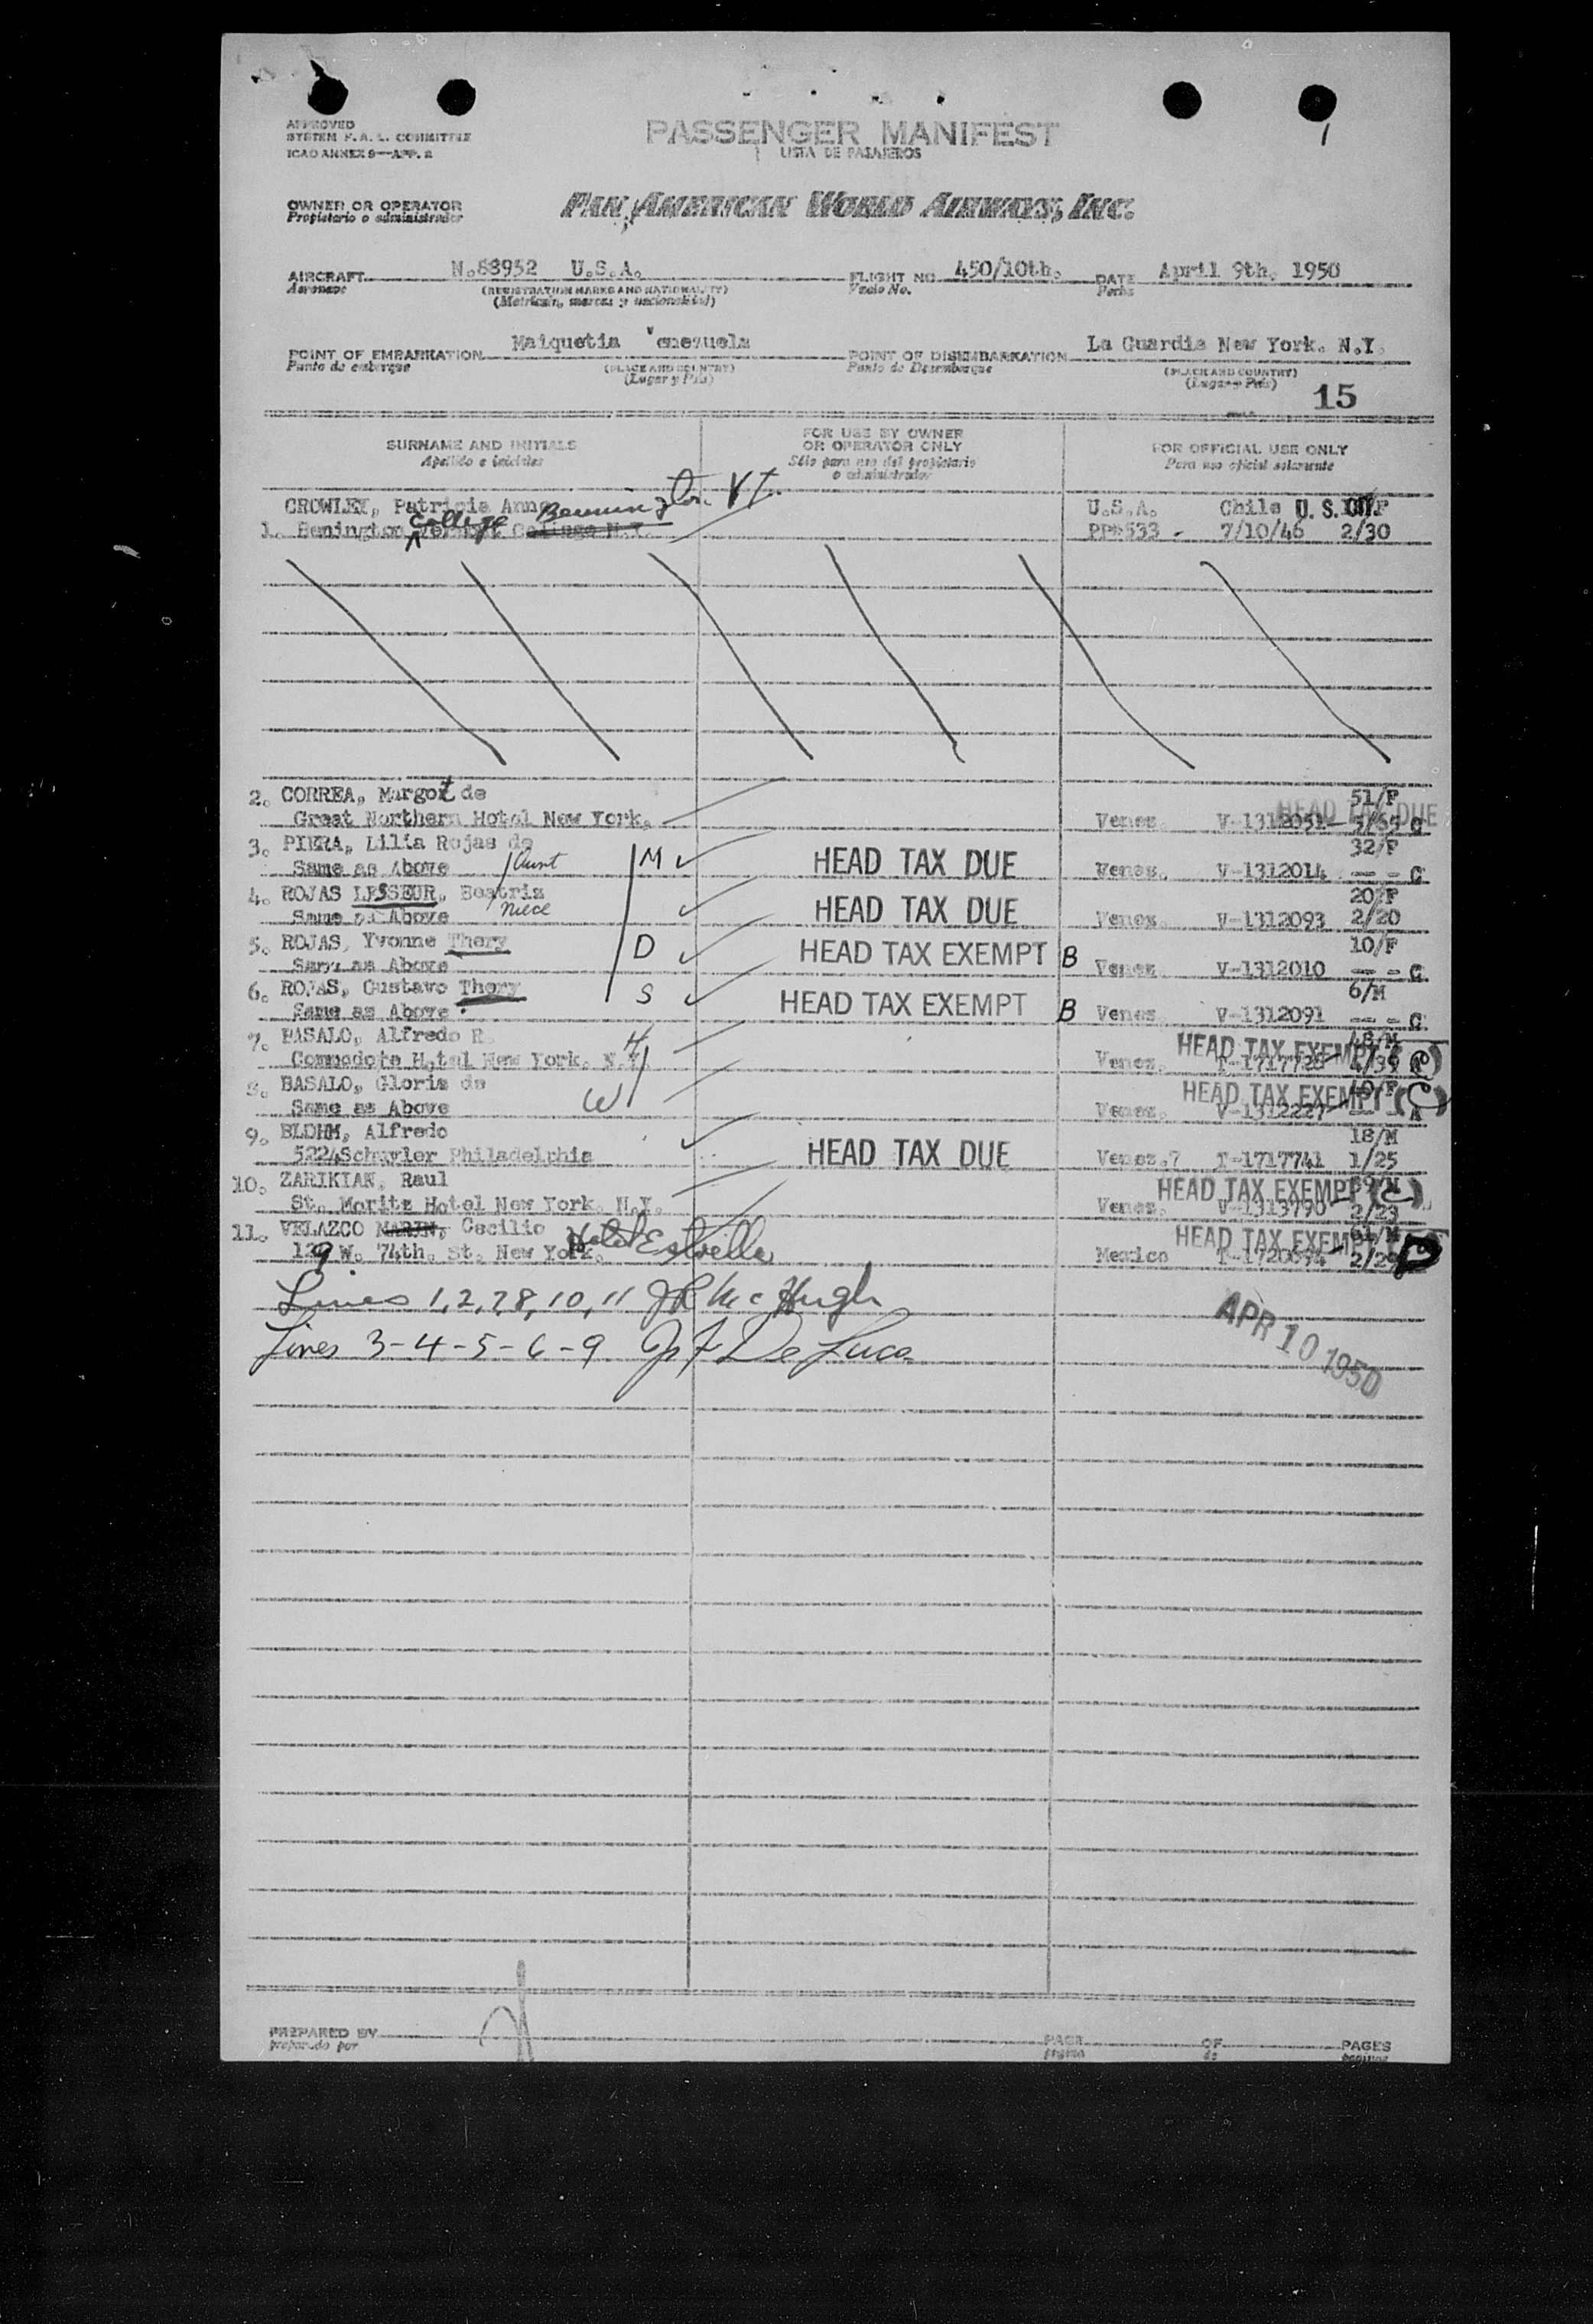 APPROVED
SYSTEM F.A.L. COMMITTEE
ICAO ANNEX 9—APP. 2
PASSENGER MANIFEST
LISTA DE PASAJEROS
1
OWNER OR OPERATOR
Propietario o administrador
PAN AMERICAN WORLD AIRWAYS, INC.
AIRCRAFT N.88952 U.S.A. FLIGHT NO. 450/10th. DATE April 9th. 1950
Aeronave (REGISTRATION MARKS AND NATIONALITY) Vuelo No. Fecha
(Matrícula, marcas y nacionalidad)
POINT OF EMBARKATION Maiquetia Venezuela POINT OF DISEMBARKATION La Guardia New York. N.Y.
Punto de embarque (PLACE AND COUNTRY) Punto de Desembarque (PLACE AND COUNTRY)
(Lugar y País) (Lugar y País)
15
SURNAME AND INITIALS FOR USE BY OWNER OR OPERATOR ONLY FOR OFFICIAL USE ONLY
Apellido e iniciales Sólo para uso del propietario o administrador Para uso oficial solamente
CROWLEY, Patricia Anne Bennington Vt. U.S.A. Chile U.S. CIT.
1. Benington College Vermont College N.Y. PP#533 - 7/10/46 2/30
2. CORREA, Margot de 51/F
Great Northern Hotel New York. Venez. V-1312051 HEAD TAX DUE C
3. PIERA, Lilia Rojas de 32/F
Same as Above Aunt M HEAD TAX DUE Venez. V-1312014 — - C
4. ROJAS LESSEUR, Beatriz 20/F
Same as Above niece HEAD TAX DUE Venez. V-1312093 2/20
5. ROJAS, Yvonne Thery 10/F
Same as Above D HEAD TAX EXEMPT B Venez. V-1312010 — - C
6. ROJAS, Gustavo Thery 6/M
Same as Above S HEAD TAX EXEMPT B Venez. V-1312091 — - C
7. BASALO, Alfredo R. H 48/M
Commodore Hotel New York. N.Y. HEAD TAX EXEMPT Venez. T-1717728 4/35
8. BASALO, Gloria de 40/F
Same as Above W HEAD TAX EXEMPT (C) Venez. V-1312227 — - A
9. BLOHM, Alfredo 18/M
5224 Schuyler Philadelphia HEAD TAX DUE Venez. T-1717741 1/25
10. ZARIKIAN, Raul
St. Moritz Hotel New York. N.Y. HEAD TAX EXEMPT (C) Venez. V-1313790 2/23
11. VELAZCO MARIN, Cecilio Hotel 61/M
129 W. 74th. St. New York. HEAD TAX EXEMPT Mexico 2/29
Lines 1, 2, 7, 8, 10, 11 JR McHugh
Lines 3-4-5-6-9 J F DeLuca
APR 10 1950
PREPARED BY PAGE OF PAGES
preparado por página de páginas